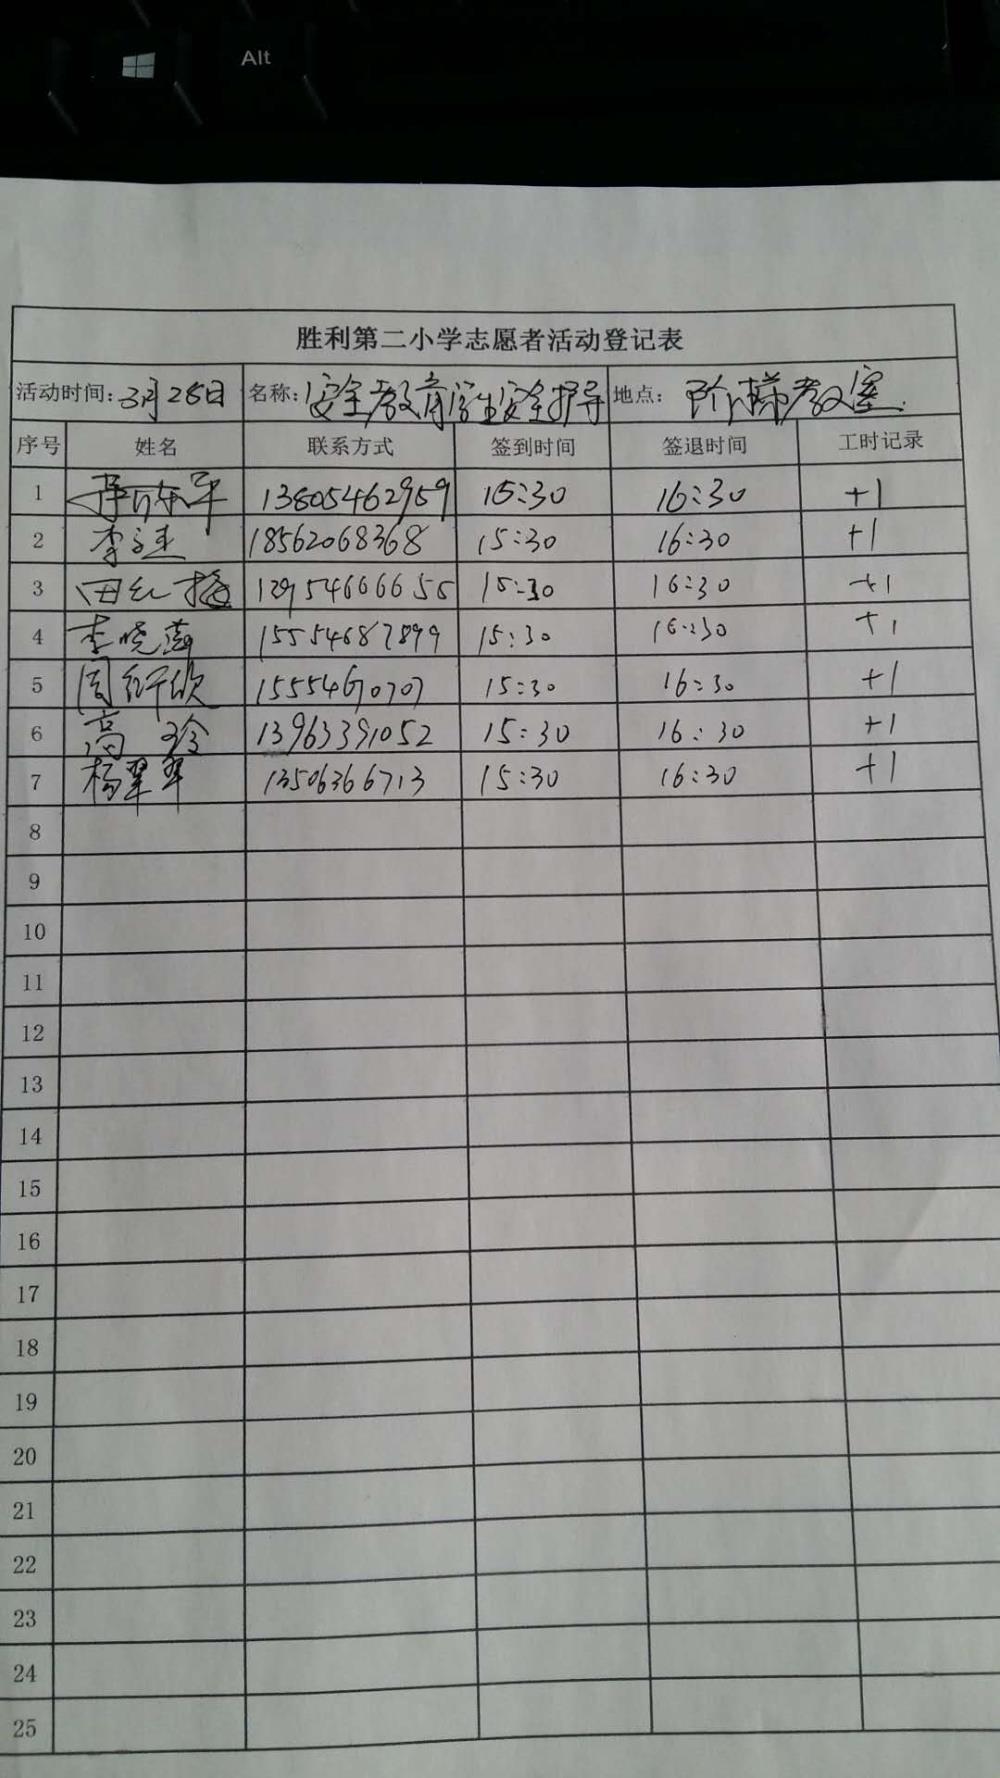 Alt
胜利第二小学志愿者活动登记表
活动时间: 3月28日 名称: 安全教育学生安全指导 地点: 阶梯教室.
序号 姓名 联系方式 签到时间 签退时间 工时记录
1 13805462959 15:30 16:30 +1
2 李 18562068368 15:30 16:30 +1
3 田红梅 15:30 16:30 +1
4 李晓燕 15554687899 15:30 16:30 +1
5 周 15:30 16:30 +1
6 高玲 13963391052 15:30 16:30 +1
7 杨翠翠 13506366713 15:30 16:30 +1
8
9
10
11
12
13
14
15
16
17
18
19
20
21
22
23
24
25